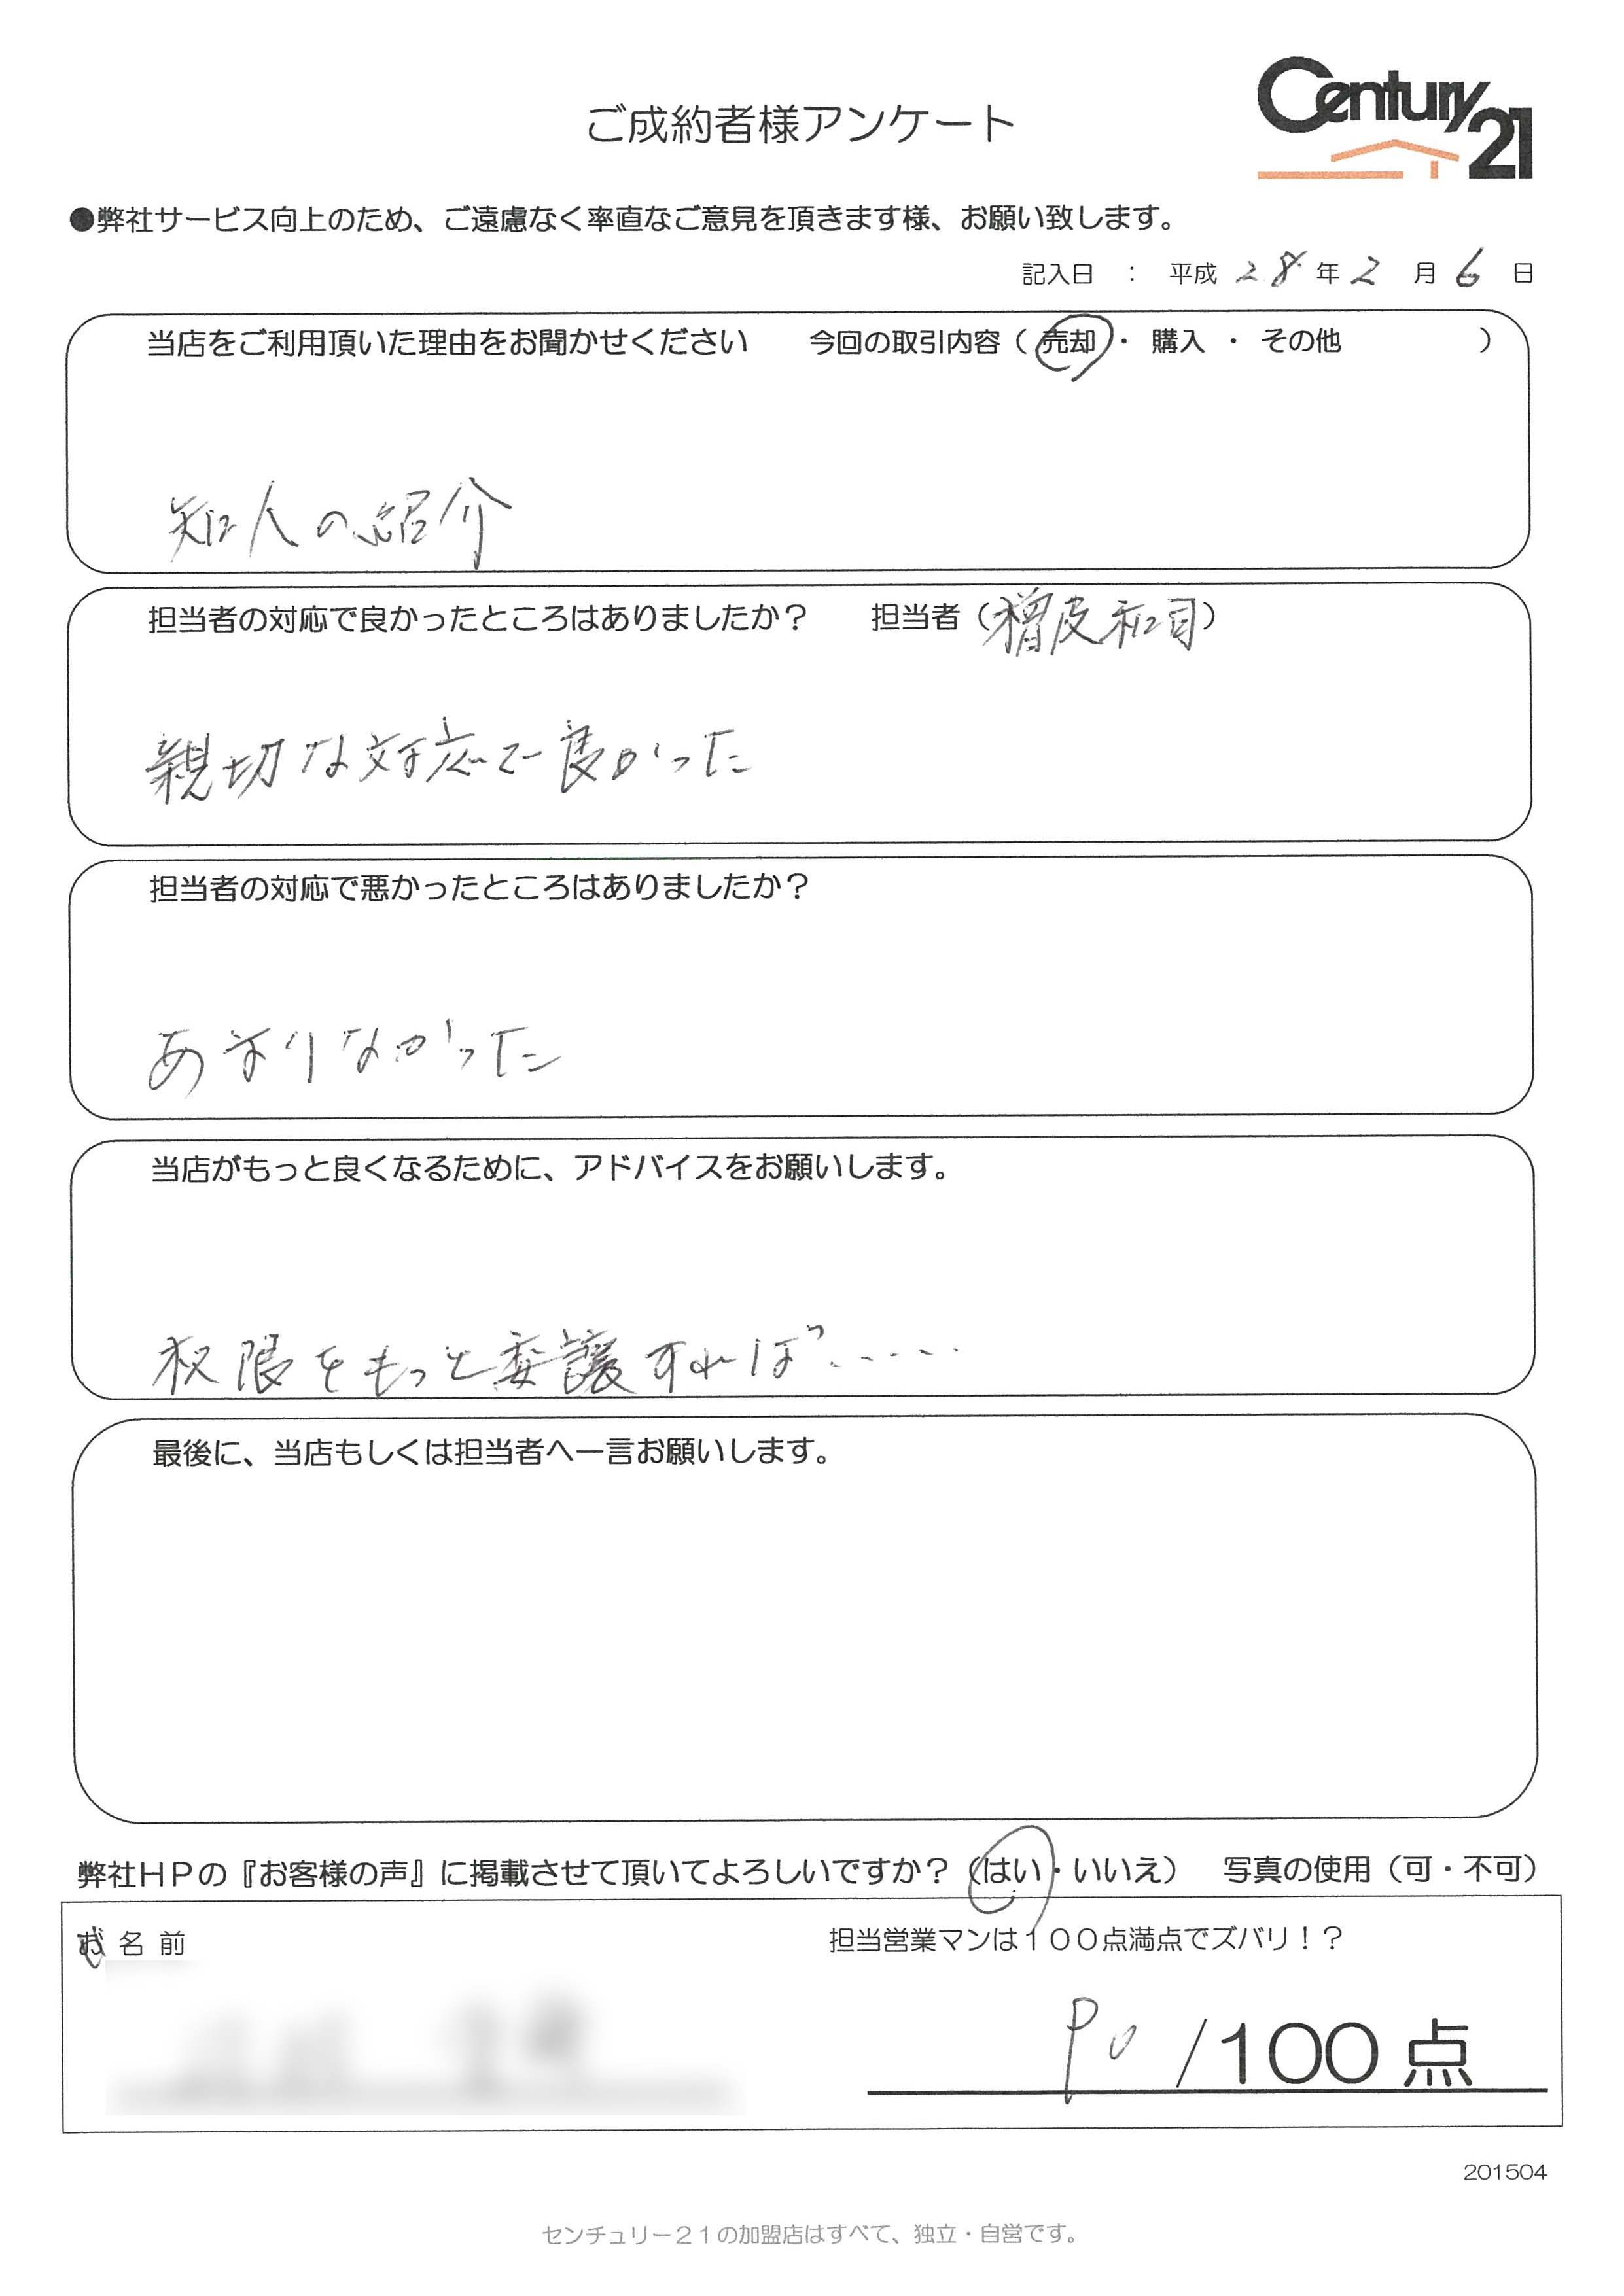 ご成約者様アンケート
Century 21
●弊社サービス向上のため、ご遠慮なく率直なご意見を頂きます様、お願い致します。
記入日 : 平成 28 年 2 月 6 日
当店をご利用頂いた理由をお聞かせください 今回の取引内容（ 売却 ・ 購入 ・ その他 ）
知人の紹介
担当者の対応で良かったところはありましたか？ 担当者（檜皮和司）
親切な対応で良かった
担当者の対応で悪かったところはありましたか？
あまりなかった
当店がもっと良くなるために、アドバイスをお願いします。
権限をもっと委譲すれば……
最後に、当店もしくは担当者へ一言お願いします。
弊社ＨＰの『お客様の声』に掲載させて頂いてよろしいですか？（はい・いいえ） 写真の使用（可・不可）
お名前 担当営業マンは１００点満点でズバリ！？
90 /100 点
201504
センチュリー２１の加盟店はすべて、独立・自営です。